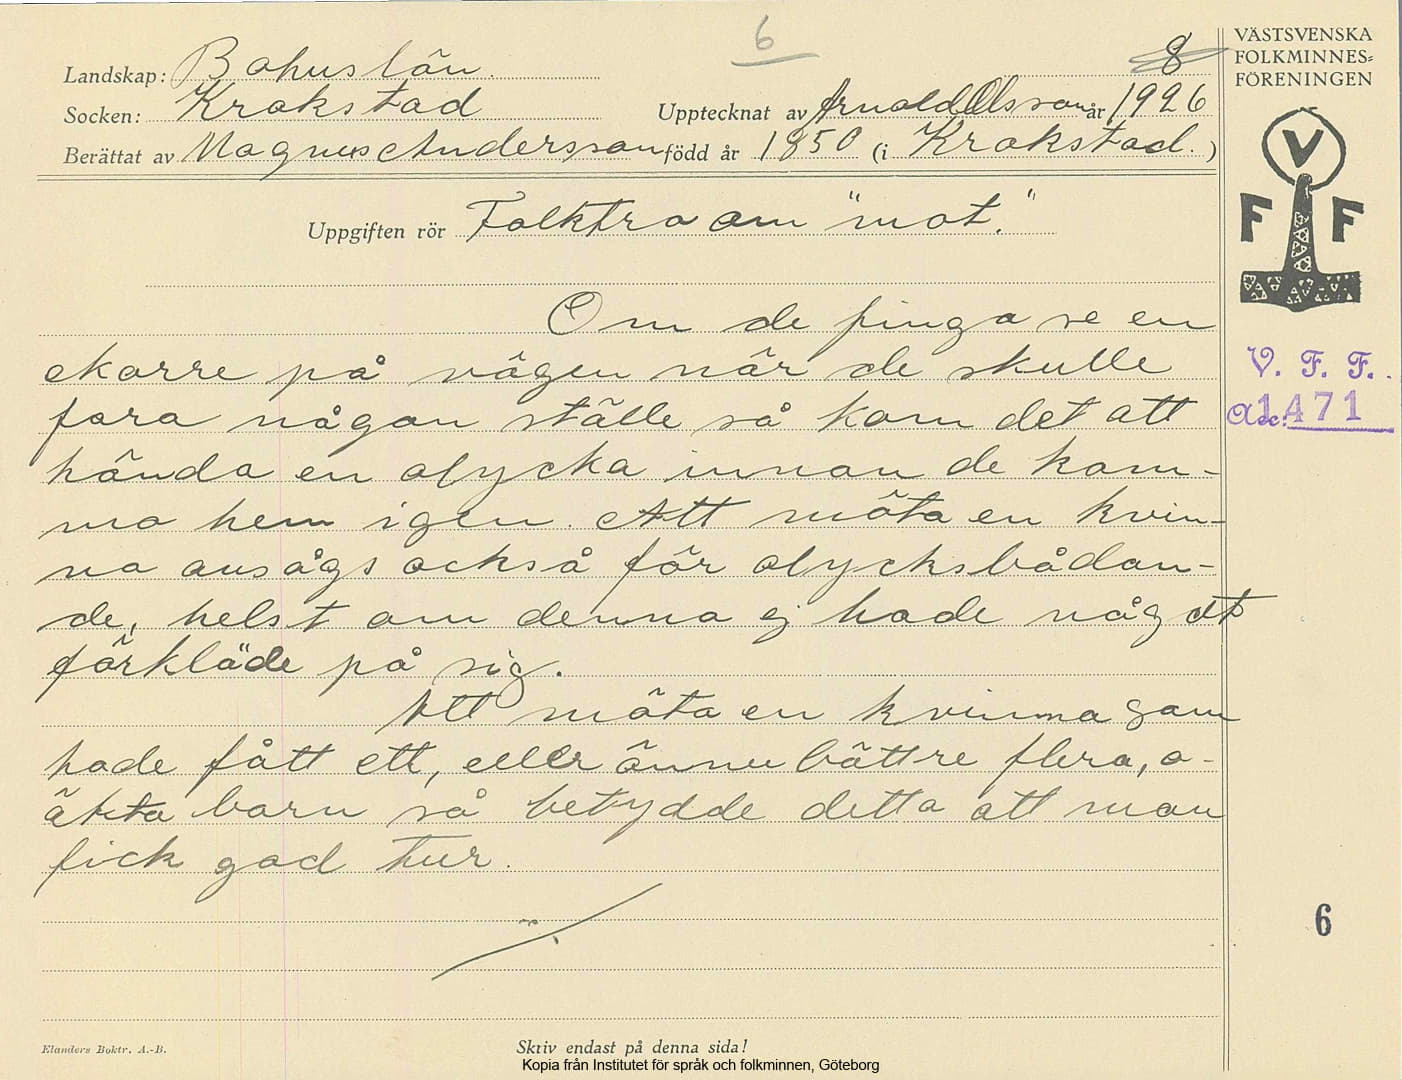 6
8
VÄSTSVENSKA
FOLKMINNES=
FÖRENINGEN
Landskap: Bohuslän.
Socken: Krokstad
Upptecknat av Arnold Olsson år 1926
Berättat av Magnus Andersson född år 1850 (i Krokstad.)
V
F F
Uppgiften rör Folktro om "mot."
Om de finga se en
ekorre på vägen när de skulle
fara någon ställe så kom det att
hända en olycka innan de kom-
mo hem igen. Att möta en kvin-
na ansågs också för olycksbådan-
de, helst om denna ej hade något
förkläde på sig.
Att möta en kvinna som
hade fått ett, eller ännu bättre flera, o-
äkta barn så betydde detta att man
fick god tur.
V. F. F.
Acc. 1471
6
Elanders Boktr. A.-B.
Skriv endast på denna sida!
Kopia från Institutet för språk och folkminnen, Göteborg